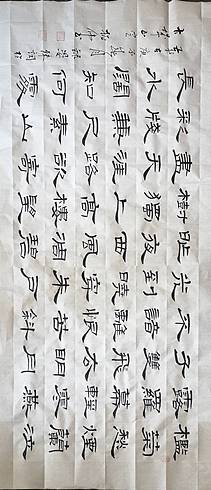 檻菊愁煙蘭泣
露羅幕輕寒燕
子雙飛去明月
不諳離恨苦斜
光到曉穿朱戶
昨夜西風凋碧
樹獨上高樓望
盡天涯路欲寄
彩牋兼尺素山
長水闊知何處